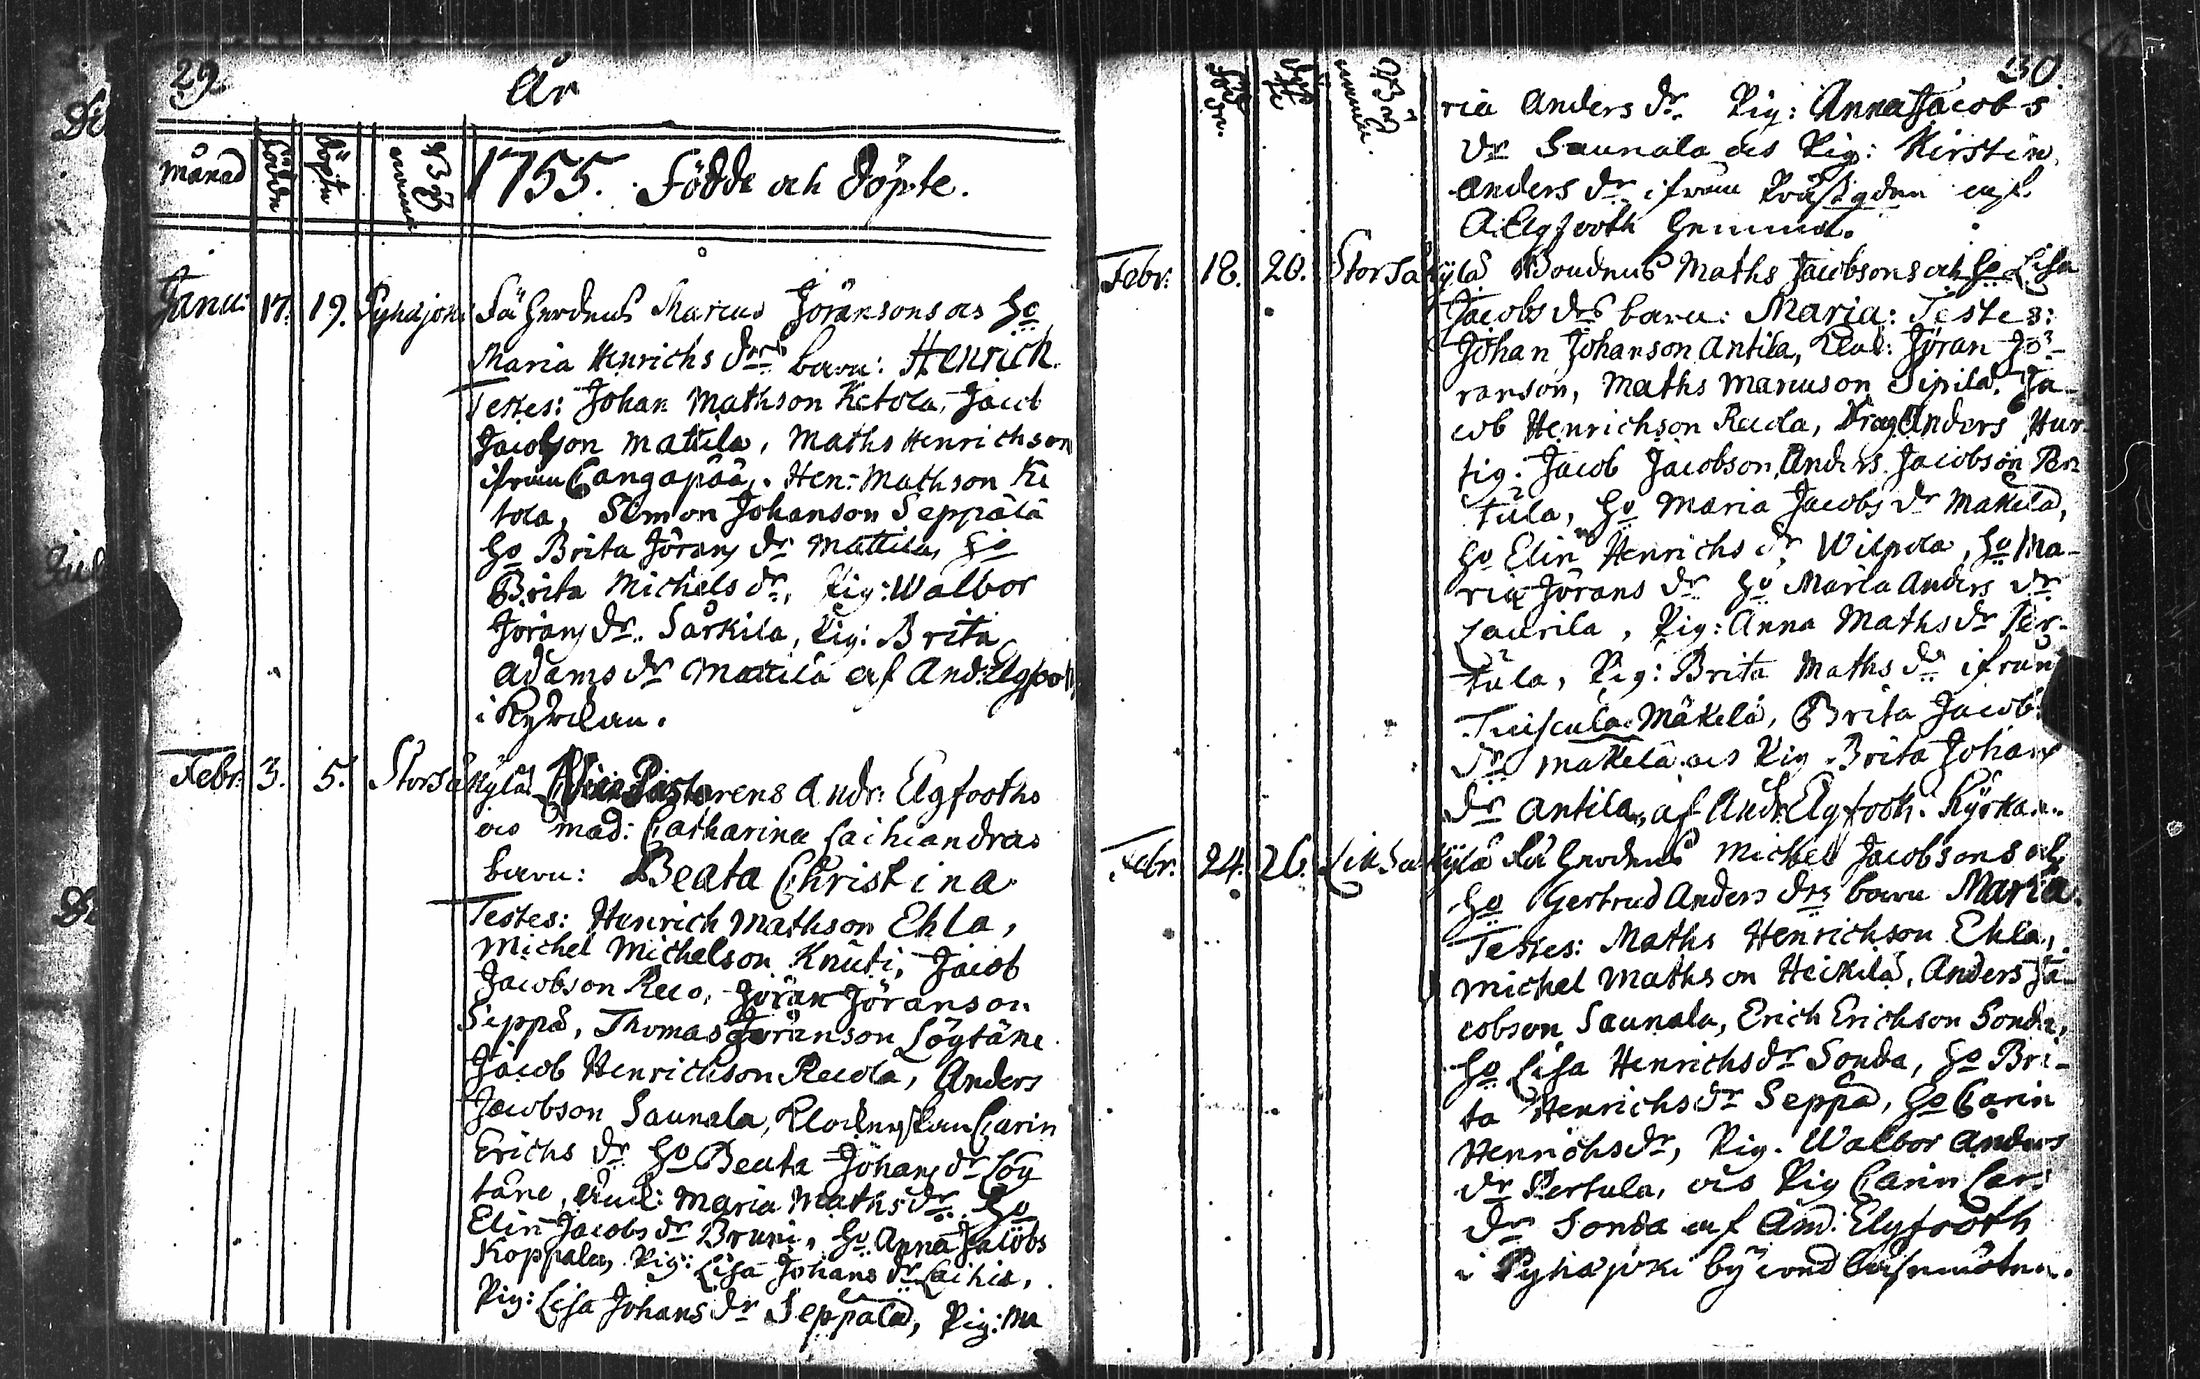 29
År
månad födde döpte Byens namn
1755. Födde och döpte.
Janu: 17. 19. Pyhäjoki Lågherdens Marcus Jöransons och Ho
Maria Henrichs drs barn: Henrich.
Testes: Johan Mathson Ketola, Jacob
Jacobson Mattila, Maths Henrichson
ifrån Cangapää. Hen: Mathson Ke
tola, Simon Johanson Seppälä
Ho Brita Jörans dr Mattila, Ho
Brita Michels dr, Pig: Walbor
Jörans dr. Särkilä, Pig: Brita
Adams dr Mattila af And: Elgfoth
i Kyrckan.
Febr: 3. 5. Storsäkylä Vice Pastorens Andr: Elgfooths
och mad: Catharina Laihiandras
barn: Beata Christina
Testes: Henrich Mathson Ehla,
Michel Michelson Knuti, Jacob
Jacobson Reco, Jöran Jöranson
Seppä, Thomas Jöranson Löytäne
Jacob Henrichson Recola, Anders
Jacobson Saunala, Klockarskan Carin
Erichs dr Ho Beata Johans dr Löy
täne, Maria Maths dr Ho
Elin Jacobs dr Bruni, Ho Anna Jacobs
Koppala, Pig: Lisa Johans dr Laihia,
Pig: Lisa Johans dr Seppälä, Pig: Ma
30.
födde döpte Byens namn
ria Anders dr. Pig: Anna Jacobs
dr Saunala och Pig: Kirstin
Anders dr ifrån Prästgården af
A. Elgfooth hemma.
Febr: 18. 20. Storsäkylä Bondens Maths Jacobsons och Ho Lisa
Jacobs drs barn: Maria: Testes:
Johan Johanson Antila, Jöran Jö-
ranson, Maths Marcuson Sipilä, Ja-
cob Henrichson Recola, Drag Anders Hur-
tig. Jacob Jacobson, Anders Jacobson Per
tula, Ho Maria Jacobs dr Mäkilä,
Ho Elin Henrichs dr Wilpola, Ho Ma-
ria Jörans dr Ho Maria Anders dr
Laurila, Pig: Anna Maths dr Per-
tula, Pig: Brita Maths dr ifrån
Tuiscula Mäkelä, Brita Jacobs
dr Mäkelä och Pig Brita Johans
dr Antila, af And: Elgfooth. Kyrkan.
Febr: 24. 26. Lilsäkylä Lågherdens Michel Jacobsons och
Ho Gertrud Anders drs barn Maria.
Testes: Maths Henrichson Ehla,
Michel Mathson Heikilä, Anders Ja-
cobson Saunala, Erich Erichson Sonda,
Ho Lisa Henrichs dr Sonda, Ho Bri-
ta Henrichs dr Seppä, Ho Carin
Henrichs dr, Pig. Walbor Anders
dr Pertula, och Pig Carin Cars
dr Sonda af And: Elgfooth
i Pyhäjoki by wid läsmöten.